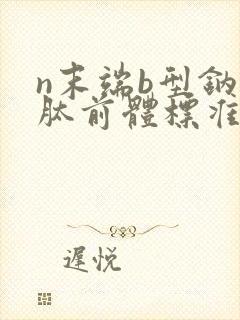 n末端b型鈉
肽前體標准
遲悦